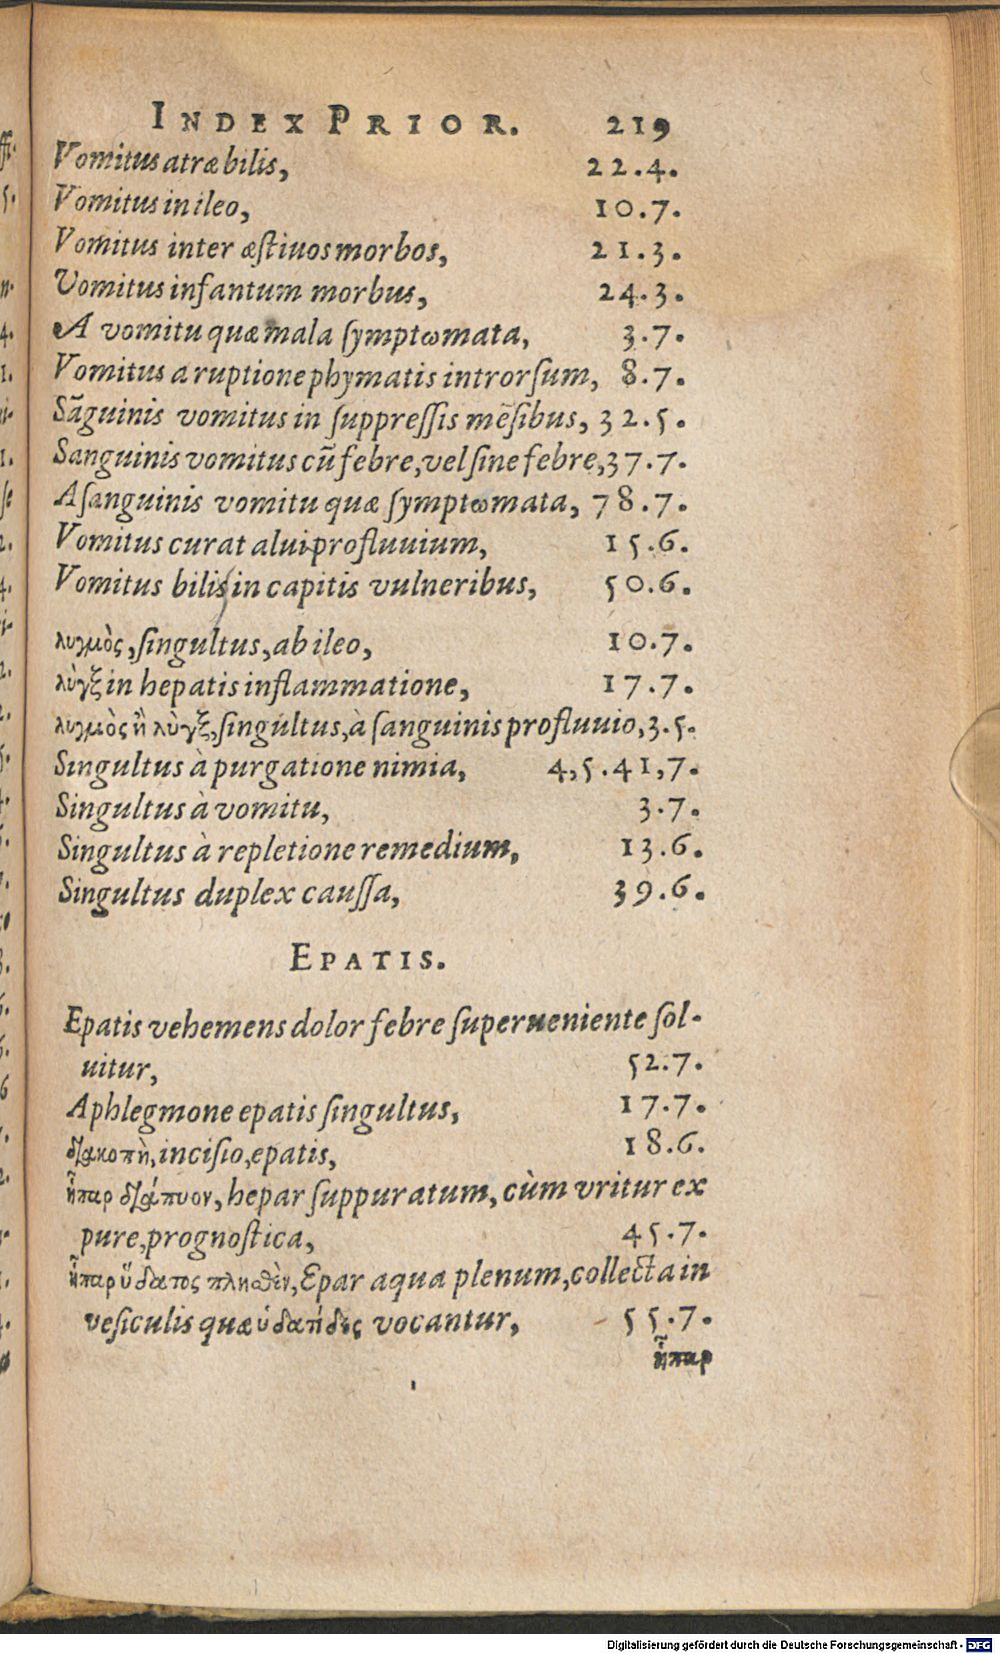 INDEX PRIOR. 219
Vomitus atræ bilis, 22.4.
Vomitus in ileo, 10.7.
Vomitus inter æstiuos morbos, 21.3.
Vomitus infantum morbus, 24.3.
A vomitu quæ mala ſymptωmata, 3.7.
Vomitus a ruptione phymatis introrſum, 8.7.
Sãguinis vomitus in ſuppreſſis mẽſibus, 32.5.
Sanguinis vomitus cũ febre, vel ſine febre, 37.7.
A ſanguinis vomitu quæ ſymptωmata, 78.7.
Vomitus curat alui profluuium, 15.6.
Vomitus bilis in capitis vulneribus, 50.6.
λυγμὸς, ſingultus, ab ileo, 10.7.
λὺγξ in hepatis inflammatione, 17.7.
λυγμὸς ἢ λὺγξ, ſingultus, à ſanguinis profluuio, 3.5.
Singultus à purgatione nimia, 4,5.41,7.
Singultus à vomitu, 3.7.
Singultus à repletione remedium, 13.6.
Singultus duplex cauſſa, 39.6.
EPATIS.
Epatis vehemens dolor febre ſuperueniente ſol-
uitur, 52.7.
A phlegmone epatis ſingultus, 17.7.
διακοπὴ, inciſio, epatis, 18.6.
ἧπαρ διάπυον, hepar ſuppuratum, cùm vritur ex
pure, prognoſtica, 45.7.
ἧπαρ ὕδατος πληθὲν, Epar aqua plenum, collecta in
veſiculis quæ ὑδατίδες vocantur, 55.7.
ἧπαρ
Digitalisierung gefördert durch die Deutsche Forschungsgemeinschaft - DFG